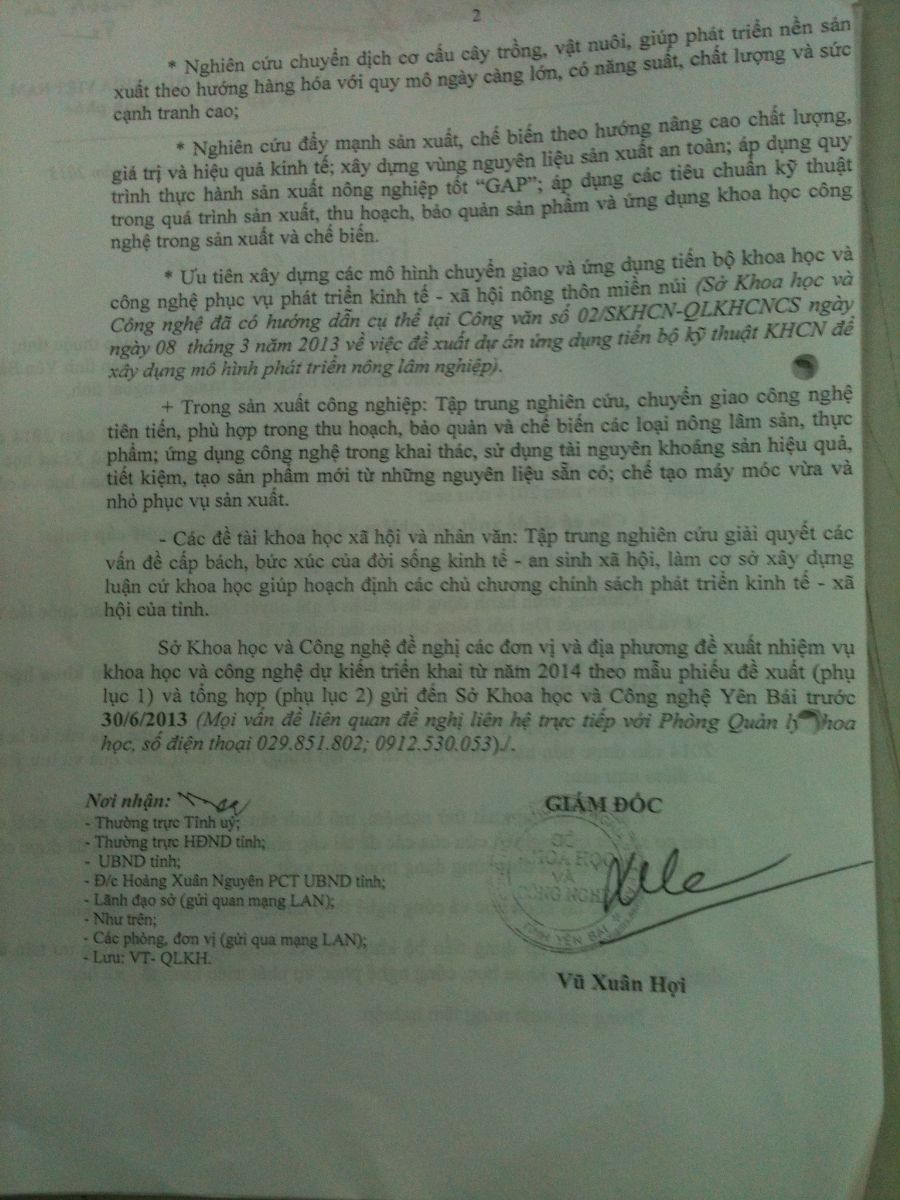 2
* Nghiên cứu chuyển dịch cơ cấu cây trồng, vật nuôi, giúp phát triển nền sản
xuất theo hướng hàng hóa với quy mô ngày càng lớn, có năng suất, chất lượng và sức
cạnh tranh cao;
* Nghiên cứu đẩy mạnh sản xuất, chế biến theo hướng nâng cao chất lượng,
giá trị và hiệu quả kinh tế; xây dựng vùng nguyên liệu sản xuất an toàn; áp dụng quy
trình thực hành sản xuất nông nghiệp tốt “GAP”; áp dụng các tiêu chuẩn kỹ thuật
trong quá trình sản xuất, thu hoạch, bảo quản sản phẩm và ứng dụng khoa học công
nghệ trong sản xuất và chế biến.
* Ưu tiên xây dựng các mô hình chuyển giao và ứng dụng tiến bộ khoa học và
công nghệ phục vụ phát triển kinh tế - xã hội nông thôn miền núi (Sở Khoa học và
Công nghệ đã có hướng dẫn cụ thể tại Công văn số 02/SKHCN-QLKHCNCS ngày
ngày 08 tháng 3 năm 2013 về việc đề xuất dự án ứng dụng tiến bộ kỹ thuật KHCN để
xây dựng mô hình phát triển nông lâm nghiệp).
+ Trong sản xuất công nghiệp: Tập trung nghiên cứu, chuyển giao công nghệ
tiên tiến, phù hợp trong thu hoạch, bảo quản và chế biến các loại nông lâm sản, thực
phẩm; ứng dụng công nghệ trong khai thác, sử dụng tài nguyên khoáng sản hiệu quả,
tiết kiệm, tạo sản phẩm mới từ những nguyên liệu sẵn có; chế tạo máy móc vừa và
nhỏ phục vụ sản xuất.
- Các đề tài khoa học xã hội và nhân văn: Tập trung nghiên cứu giải quyết các
vấn đề cấp bách, bức xúc của đời sống kinh tế - an sinh xã hội, làm cơ sở xây dựng
luận cứ khoa học giúp hoạch định các chủ chương chính sách phát triển kinh tế - xã
hội của tỉnh.
Sở Khoa học và Công nghệ đề nghị các đơn vị và địa phương đề xuất nhiệm vụ
khoa học và công nghệ dự kiến triển khai từ năm 2014 theo mẫu phiếu đề xuất (phụ
lục 1) và tổng hợp (phụ lục 2) gửi đến Sở Khoa học và Công nghệ Yên Bái trước
30/6/2013 (Mọi vấn đề liên quan đề nghị liên hệ trực tiếp với Phòng Quản lý khoa
học, số điện thoại 029.851.802; 0912.530.053)./.
Nơi nhận:
- Thường trực Tỉnh uỷ;
- Thường trực HĐND tỉnh;
- UBND tỉnh;
- Đ/c Hoàng Xuân Nguyên PCT UBND tỉnh;
- Lãnh đạo sở (gửi quan mạng LAN);
- Như trên;
- Các phòng, đơn vị (gửi qua mạng LAN);
- Lưu: VT- QLKH.
GIÁM ĐỐC
SỞ
KHOA HỌC
VÀ
CÔNG NGHỆ
TỈNH YÊN BÁI
Vũ Xuân Hợi